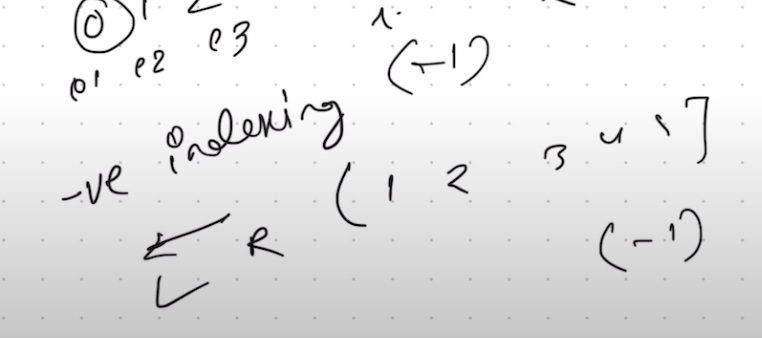 0 1 2
e1 e2 e3
(-1)
-ve indexing
( 1 2 3 4 5 ]
R
L
(-1)